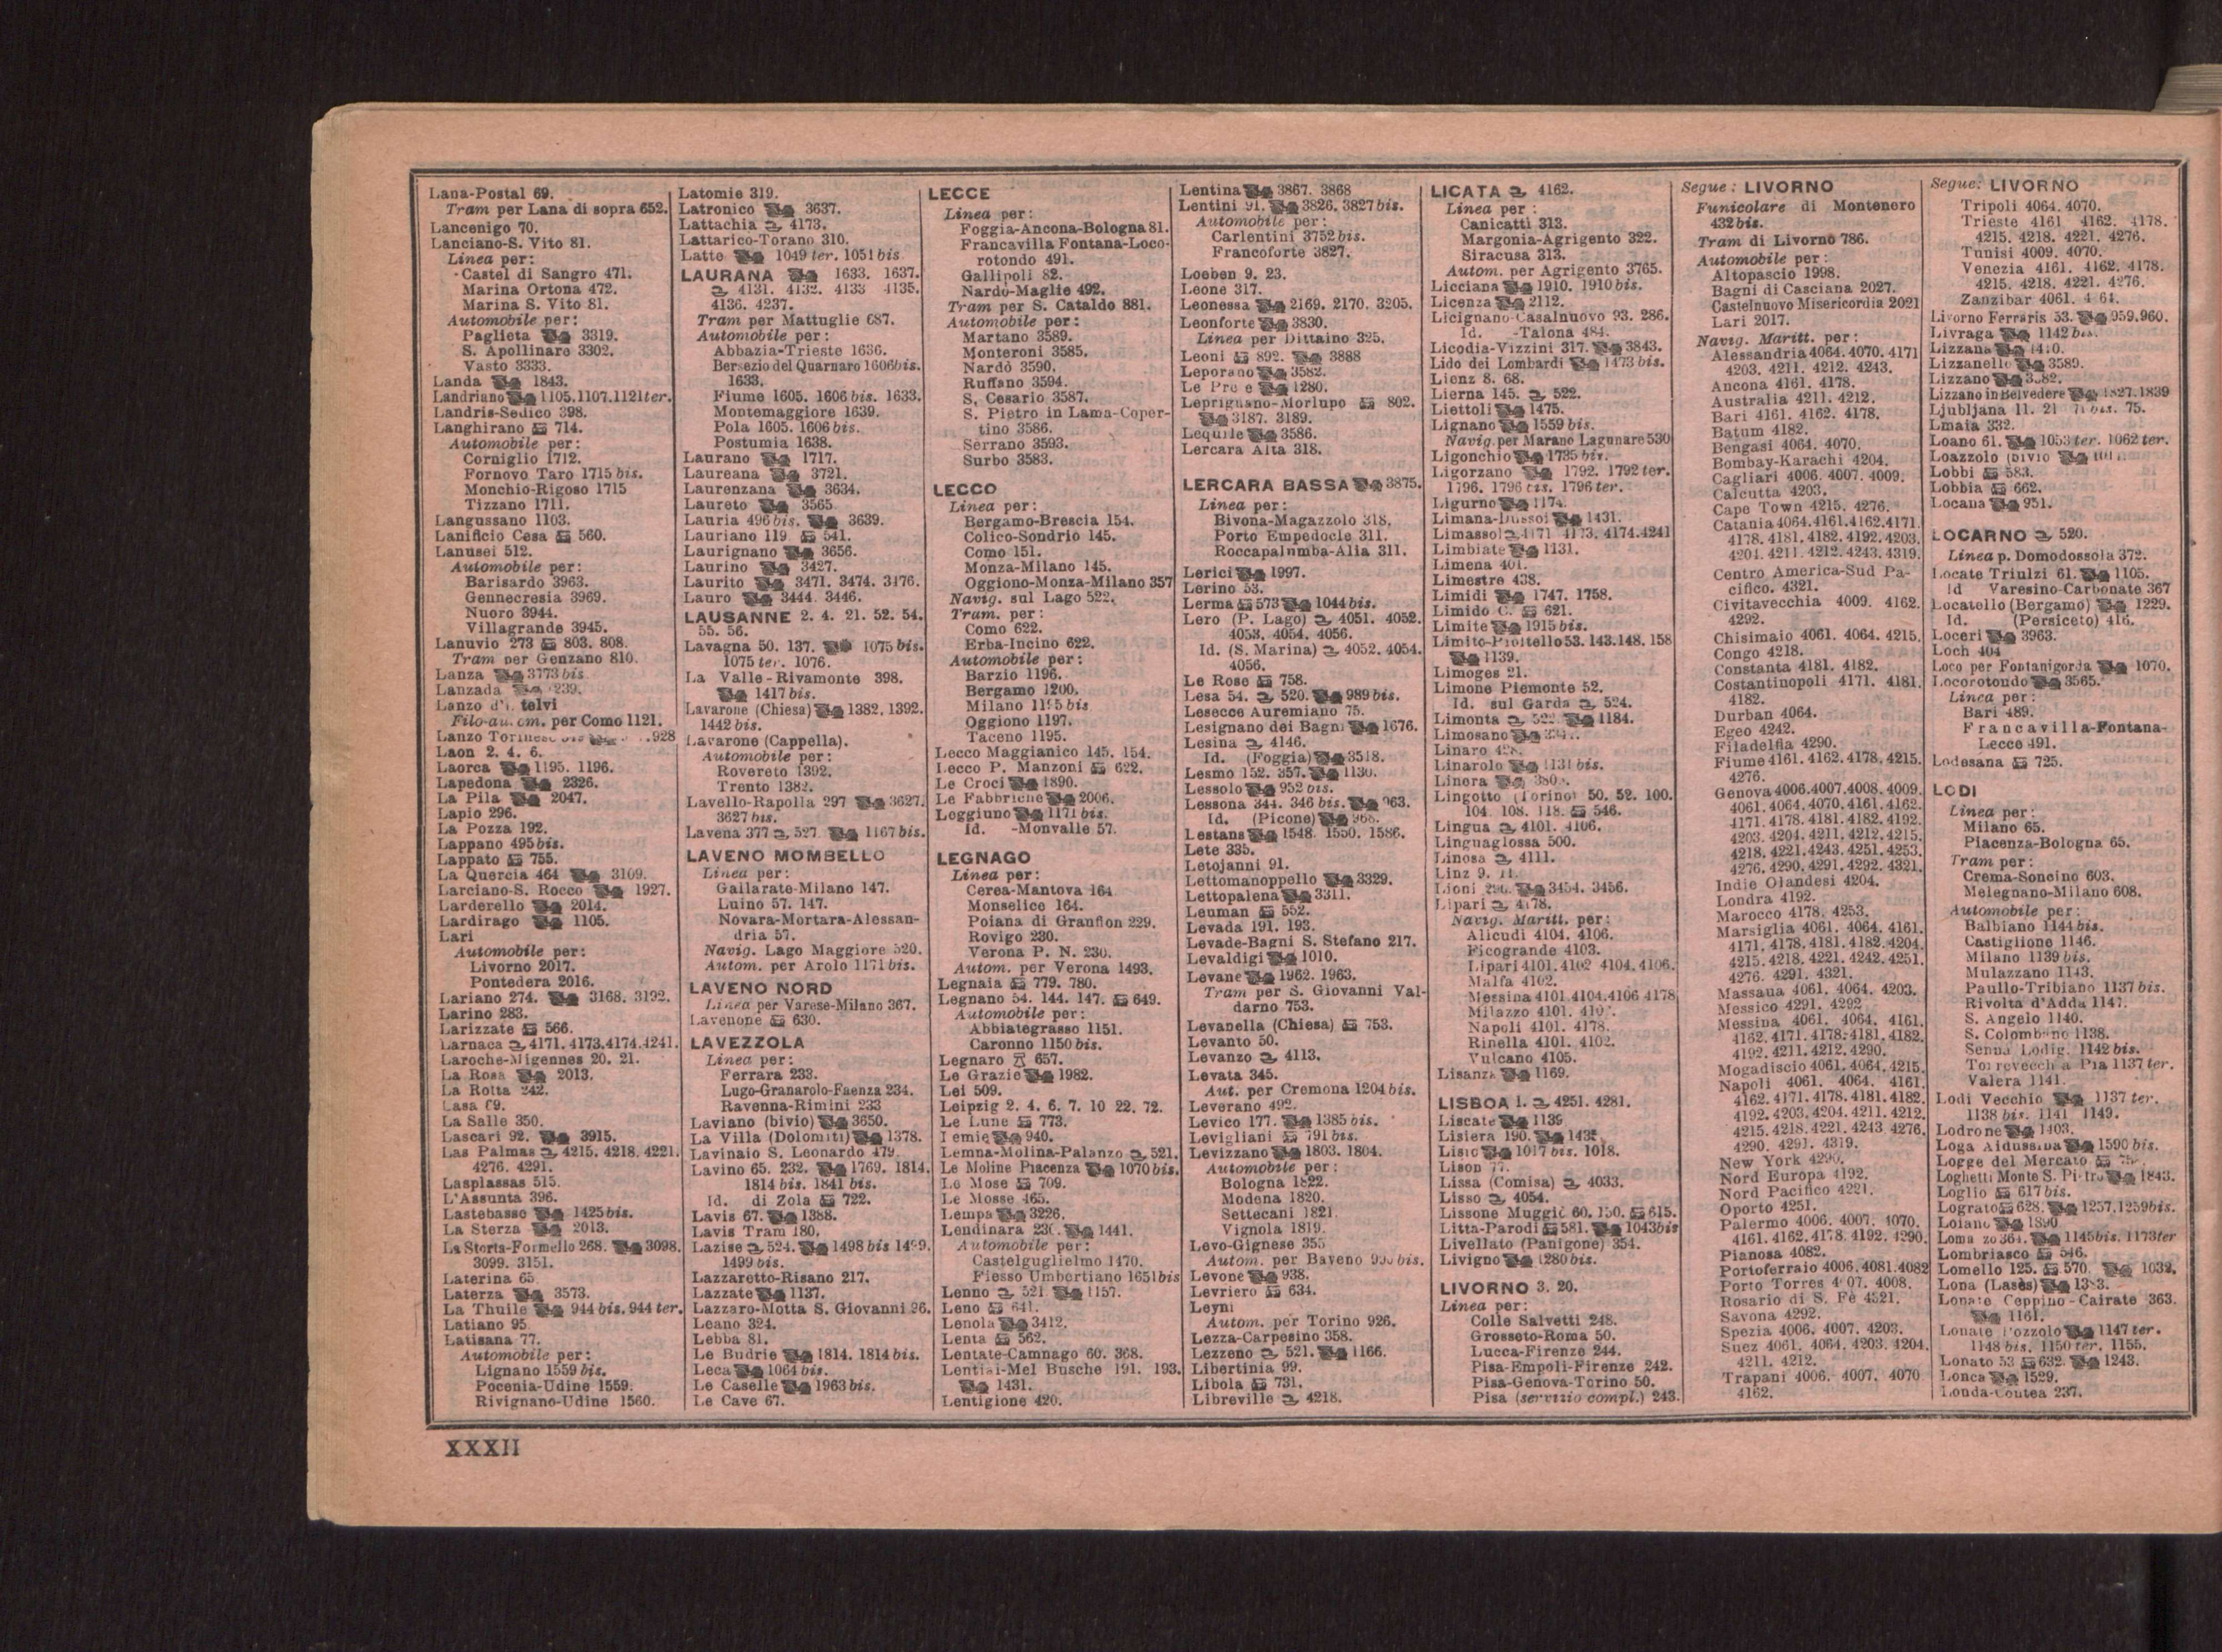 Lana-Postal 69.
Tram per Lana di sopra 652.
Lancenigo 70.
Lanciano-S. Vito 81.
Linea per:
Castel di Sangro 471.
Marina Ortona 472.
Marina S. Vito 81.
Automobile per:
Paglieta 3319.
S. Apollinare 3302.
Vasto 3333.
Landa 1843.
Landriano 1105.1107.1121ter.
Landris-Sedico 398.
Langhirano 714.
Automobile per:
Corniglio 1712.
Fornovo Taro 1715 bis.
Monchio-Rigoso 1715
Tizzano 1711.
Langussano 1103.
Lanificio Cesa 560.
Lanusei 512.
Automobile per:
Barisardo 3963.
Gennecresia 3969.
Nuoro 3944.
Villagrande 3945.
Lanuvio 273 803. 808.
Tram per Genzano 810.
Lanza 3773 bis
Lanzada 239.
Lanzo d'I telvi
per Como 1121.
Lanzo 928
Laon 2. 4. 6.
Laorca 1195. 1196.
Lapedona 2326.
La Pila 2047.
Lapio 296.
La Pozza 192.
Lappano 495bis.
Lappato 755.
La Quercia 464 3109.
Larciano-S. Rocco 1927.
Larderello 2014.
Lardirago 1105.
Lari
Automobile per:
Livorno 2017.
Pontedera 2016.
Lariano 274. 3168. 3192.
Larino 283.
Larizzate 566.
Larnaca 4171. 4173.4174.4241.
Laroche-Migennes 20. 21.
La Rosa 2013.
La Rotta 242.
Lasa 69.
La Salle 350.
Lascari 92. 3915.
Las Palmas 4215. 4218. 4221.
4276. 4291.
Lasplassas 515.
L'Assunta 396.
Lastebasse 1425bis.
La Sterza 2013.
La Storta-Formello 268. 3098.
3099. 3151.
Laterina 65.
Laterza 3573.
La Thuile 944 bis. 944 ter.
Latiano 95
Latisana 77.
Automobile per:
Lignano 1559 bis.
Pocenia-Udine 1559.
Rivignano-Udine 1560.
Latomie 319.
Latronico 3637.
Lattachia 4173.
Lattarico-Torano 310.
Latte 1049 ter. 1051 bis
LAURANA 1633. 1637.
4131. 4132. 4133 4135.
4136. 4237.
Tram per Mattuglie 687.
Automobile per:
Abbazia-Trieste 1636.
Bersezio del Quarnaro 1606bis.
1633.
Fiume 1605. 1606 bis. 1633.
Montemaggiore 1639.
Pola 1605. 1606 bis.
Postumia 1638.
Laurano 1717.
Laureana 3721.
Laurenzana 3634.
Laureto 3565
Lauria 496 bis. 3639.
Lauriano 119 541.
Laurignano 3656.
Laurino 3427.
Laurito 3471. 3474. 3176.
Lauro 3444. 3446.
LAUSANNE 2. 4. 21. 52. 54.
55. 56.
Lavagna 50. 137. 1075 bis.
1075 ter. 1076.
La Valle-Rivamonte 398.
1417 bis.
Lavarone (Chiesa) 1382. 1392.
1442 bis.
Lavarone (Cappella).
Automobile per:
Rovereto 1392.
Trento 1382.
Lavello-Rapolla 297 3627.
3627 bis.
Lavena 377 527. 1167 bis.
LAVENO MOMBELLO
Linea per:
Gallarate-Milano 147.
Luino 57. 147.
Novara-Mortara-Alessan-
dria 57.
Navig. Lago Maggiore 520.
Autom. per Arolo 1171 bis.
LAVENO NORD
Linea per Varese-Milano 367.
Lavenone 630.
LAVEZZOLA
Linea per:
Ferrara 233.
Lugo-Granarolo-Faenza 234.
Ravenna-Rimini 233
Laviano (bivio) 3650.
La Villa (Dolomiti) 1378.
Lavinaio S. Leonardo 479.
Lavino 65. 232. 1769. 1814.
1814 bis. 1841 bis.
Id. di Zola 722.
Lavis 67. 1388.
Lavis Tram 180.
Lazise 524. 1498 bis 1499.
1499 bis.
Lazzaretto-Risano 217.
Lazzate 1137.
Lazzaro-Motta S. Giovanni 26.
Leano 324.
Lebba 81.
Le Budrie 1814. 1814 bis.
Leca 1064 bis.
Le Caselle 1963 bis.
Le Cave 67.
LECCE
Linea per:
Foggia-Ancona-Bologna 81.
Francavilla Fontana-Loco-
rotondo 491.
Gallipoli 82.
Nardò-Maglie 492.
Tram per S. Cataldo 881.
Automobile per:
Martano 3589.
Monteroni 3585.
Nardò 3590.
Ruffano 3594.
S. Cesario 3587.
S. Pietro in Lama-Coper-
tino 3586.
Serrano 3593.
Surbo 3583.
LECCO
Linea per:
Bergamo-Brescia 154.
Colico-Sondrio 145.
Como 151.
Monza-Milano 145.
Oggiono-Monza-Milano 357
Navig. sul Lago 522.
Tram. per:
Como 622.
Erba-Incino 622.
Automobile per:
Barzio 1196.
Bergamo 1200.
Milano 1195 bis
Oggiono 1197.
Taceno 1195.
Lecco Maggianico 145. 154.
Lecco P. Manzoni 622.
Le Croci 1890.
Le Fabbriche 2006.
Leggiuno 1171 bis.
Id. -Monvalle 57.
LEGNAGO
Linea per:
Cerea-Mantova 164
Monselice 164.
Poiana di Granfion 229.
Rovigo 230.
Verona P. N. 230.
Autom. per Verona 1493.
Legnaia 779. 780.
Legnano 54. 144. 147. 649.
Automobile per:
Abbiategrasso 1151.
Caronno 1150 bis.
Legnaro 657.
Le Grazie 1982.
Lei 509.
Leipzig 2. 4. 6. 7. 10 22. 72.
Le Lune 773.
Lemie 940.
Lemna-Molina-Palanzo 521.
Le Moline Piacenza 1070 bis.
Le Mose 709.
Le Mosse 465.
Lempa 3226.
Lendinara 230. 1441.
Automobile per:
Castelguglielmo 1470.
Fiesso Umbertiano 1651 bis
Lenno 521 1157.
Leno 641.
Lenola 3412.
Lenta 562.
Lentate-Camnago 60. 368.
Lentiai-Mel Busche 191. 193.
1431.
Lentigione 420.
Lentina 3867. 3868
Lentini 91. 3826. 3827 bis.
Automobile per:
Carlentini 3752 bis.
Francoforte 3827.
Loeben 9. 23.
Leone 317.
Leonessa 2169. 2170. 3205.
Leonforte 3830.
Linea per Dittaino 325.
Leoni 892. 3888
Leporano 3582.
Le Pre e 1280.
Leprignano-Morlupo 802.
3187. 3189.
Lequile 3586.
Lercara Alta 318.
LERCARA BASSA 3875.
Linea per:
Bivona-Magazzolo 318.
Porto Empedocle 311.
Roccapalumba-Alia 311.
Lerici 1997.
Lerino 53.
Lerma 573 1044 bis.
Lero (P. Lago) 4051. 4052.
4053. 4054. 4056.
Id. (S. Marina) 4052. 4054.
4056.
Le Rose 758.
Lesa 54. 520. 989 bis.
Lesecce Auremiano 75.
Lesignano dei Bagni 1676.
Lesina 4146.
Id. (Foggia) 3518.
Lesmo 152. 357. 1130.
Lessolo 952 bis.
Lessona 344. 346 bis. 963.
Id. (Picone) 968.
Lestans 1548. 1550. 1586.
Lete 335.
Letojanni 91.
Lettomanoppello 3329.
Lettopalena 3311.
Leuman 552.
Levada 191. 193.
Levade-Bagni S. Stefano 217.
Levaldigi 1010.
Levane 1962. 1963.
Tram per S. Giovanni Val-
darno 753.
Levanella (Chiesa) 753.
Levanto 50.
Levanzo 4113.
Levata 345.
Aut. per Cremona 1204 bis.
Leverano 492.
Levico 177. 1385 bis.
Levigliani 791 bis.
Levizzano 1803. 1804.
Automobile per:
Bologna 1822.
Modena 1820.
Settecani 1821.
Vignola 1819.
Levo-Gignese 355
Autom. per Baveno bis.
Levone 938.
Levriero 634.
Leyni
Autom. per Torino 926.
Lezza-Carpesino 358.
Lezzeno 521. 1166.
Libertinia 99.
Libola 731.
Libreville 4218.
LICATA 4162.
Linea per:
Canicatti 313.
Margonia-Agrigento 322.
Siracusa 313.
Autom. per Agrigento 3765.
Licciana 1910. 1910 bis.
Licenza 2112.
Licignano-Casalnuovo 93. 286.
Id. -Talona 484.
Licodia-Vizzini 317. 3843.
Lido dei Lombardi 1473 bis.
Lienz 8. 68.
Lierna 145. 522.
Liettoli 1475.
Lignano 1559 bis.
Navig. per Marano Lagunare 530
Ligonchio 1735 bis.
Ligorzano 1792. 1792 ter.
1796. 1796 bis. 1796 ter.
Ligurno 1174.
Limana-Dussoi 1431.
Limassol 4171 4173. 4174.4241
Limbiate 1131.
Limena 401.
Limestre 438.
Limidi 1747. 1758.
Limido C. 621.
Limite 1915 bis.
Limito-Pioltello 53. 143.148. 158
1139.
Limoges 21.
Limone Piemonte 52.
Id. sul Garda 524.
Limonta 522 1184.
Limosano
Linaro
Linarolo 1131 bis.
Linera
Lingotto (Torino) 50. 52. 100.
104. 108. 118. 546.
Lingua 4101. 4106.
Linguaglossa 500.
Linosa 4111.
Linz 9. 11.
Lioni 3454. 3456.
Lipari 4178.
Navig. Maritt. per:
Alicudi 4104. 4106.
Ficogrande 4103.
Lipari 4101. 4102 4104. 4106.
Malfa 4102.
Messina 4101.4104.4106 4178
Milazzo 4101.
Napoli 4101. 4178.
Rinella 4101. 4102.
Vulcano 4105.
Lisanza 1169.
LISBOA 1. 4251. 4281.
Liscate 1139
Lisiera 190.
Lisio 1017 bis. 1018.
Lison 77.
Lissa (Comisa) 4033.
Lisso 4054.
Lissone Muggiò 60. 150. 615.
Litta-Parodi 581. 1043bis
Livellato (Panigone) 354.
Livigno 1280 bis.
LIVORNO 3. 20.
Linea per:
Colle Salvetti 248.
Grosseto-Roma 50.
Lucca-Firenze 244.
Pisa-Empoli-Firenze 242.
Pisa-Genova-Torino 50.
Pisa (servizio compl.) 243.
Segue: LIVORNO
Funicolare di Montenero
432 bis.
Tram di Livorno 786.
Automobile per:
Altopascio 1998.
Bagni di Casciana 2027.
Castelnuovo Misericordia 2021
Lari 2017.
Navig. Maritt. per:
Alessandria 4064. 4070. 4171
4203. 4211. 4212. 4243.
Ancona 4161. 4178.
Australia 4211. 4212.
Bari 4161. 4162. 4178.
Batum 4182.
Bengasi 4064. 4070.
Bombay-Karachi 4204.
Cagliari 4006. 4007. 4009.
Calcutta 4203.
Cape Town 4215. 4276.
Catania 4064.4161.4162.4171.
4178. 4181. 4182. 4192. 4203.
4204. 4211. 4212. 4243. 4319.
Centro America-Sud Pa-
cifico. 4321.
Civitavecchia 4009. 4162.
4292.
Chisimaio 4061. 4064. 4215.
Congo 4218.
Constanta 4181. 4182.
Costantinopoli 4171. 4181.
4182.
Durban 4064.
Egeo 4242.
Filadelfia 4290.
Fiume 4161. 4162. 4178. 4215.
4276.
Genova 4006.4007.4008. 4009.
4061. 4064. 4070. 4161. 4162.
4171. 4178. 4181. 4182. 4192.
4203. 4204. 4211. 4212. 4215.
4218. 4221. 4243. 4251. 4253.
4276. 4290. 4291. 4292. 4321.
Indie Olandesi 4204.
Londra 4192.
Marocco 4178. 4253.
Marsiglia 4061. 4064. 4161.
4171. 4178. 4181. 4182. 4204.
4215. 4218. 4221. 4242. 4251.
4276. 4291. 4321.
Massaua 4061. 4064. 4203.
Messico 4291. 4292
Messina 4061. 4064. 4161.
4162. 4171. 4178. 4181. 4182.
4192. 4211. 4212. 4290.
Mogadiscio 4061. 4064. 4215.
Napoli 4061. 4064. 4161.
4162. 4171. 4178. 4181. 4182.
4192. 4203. 4204. 4211. 4212.
4215. 4218. 4221. 4243 4276.
4290. 4291. 4319.
New York 4290.
Nord Europa 4192.
Nord Pacifico 4221.
Oporto 4251.
Palermo 4006. 4007. 4070.
4161. 4162. 4178. 4192. 4290.
Pianosa 4082.
Portoferraio 4006. 4081. 4082
Porto Torres 4007. 4008.
Rosario di S. Fè 4321.
Savona 4292.
Spezia 4006. 4007. 4203.
Suez 4061. 4064. 4203. 4204.
4211. 4212.
Trapani 4006. 4007. 4070
4162.
Segue: LIVORNO
Tripoli 4064. 4070.
Trieste 4161 4162. 4178.
4215. 4218. 4221. 4276.
Tunisi 4009. 4070.
Venezia 4161. 4162. 4178.
4215. 4218. 4221. 4276.
Zanzibar 4061.
Livorno Ferraris 53. 959.960.
Livraga 1142 bis.
Lizzana 1410.
Lizzanello 3589.
Lizzano 3582.
Lizzano in Belvedere 1827.1839
Ljubljana 11. 21 bis. 75.
Lmaia 332.
Loano 61. 1053 ter. 1062 ter.
Loazzolo (bivio
Lobbi 583.
Lobbia 662.
Locana 951.
LOCARNO 520.
Linea p. Domodossola 372.
Locate Triulzi 61. 1105.
Id Varesino-Carbonate 367
Locatello (Bergamo) 1229.
Id. (Persiceto) 416.
Loceri 3963.
Loch 404
Loco per Fontanigorda 1070.
Locorotondo 3565.
Linea per:
Bari 489.
Francavilla-Fontana-
Lecce 491.
Lodesana 725.
LODI
Linea per:
Milano 65.
Piacenza-Bologna 65.
Tram per:
Crema-Soncino 603.
Melegnano-Milano 608.
Automobile per:
Balbiano 1144 bis.
Castiglione 1146.
Milano 1139 bis.
Mulazzano 1143.
Paullo-Tribiano 1137 bis.
Rivolta d'Adda 1147.
S. Angelo 1140.
S. Colombano 1138.
Senna Lodig. 1142 bis.
Torrevecchia Pia 1137 ter.
Valera 1141.
Lodi Vecchio 1137 ter.
1138 bis. 1141 1149.
Lodrone 1403.
Loga Aidussina 1590 bis.
Logge del Mercato
Loghetti Monte S. Pietro 1843.
Loglio 617 bis.
Lograto 628. 1257.1259bis.
Loiano 1890
Loma zo 364. 1145bis. 1173ter
Lombriasco 546.
Lomello 125. 570. 1032.
Lona (Lasès) 1383.
Lonate Ceppino-Cairate 363.
1161.
Lonate Pozzolo 1147 ter.
1148 bis. 1150 ter. 1155.
Lonato 53 632. 1243.
Lonca 1529.
Londa-Contea 237.
XXXII